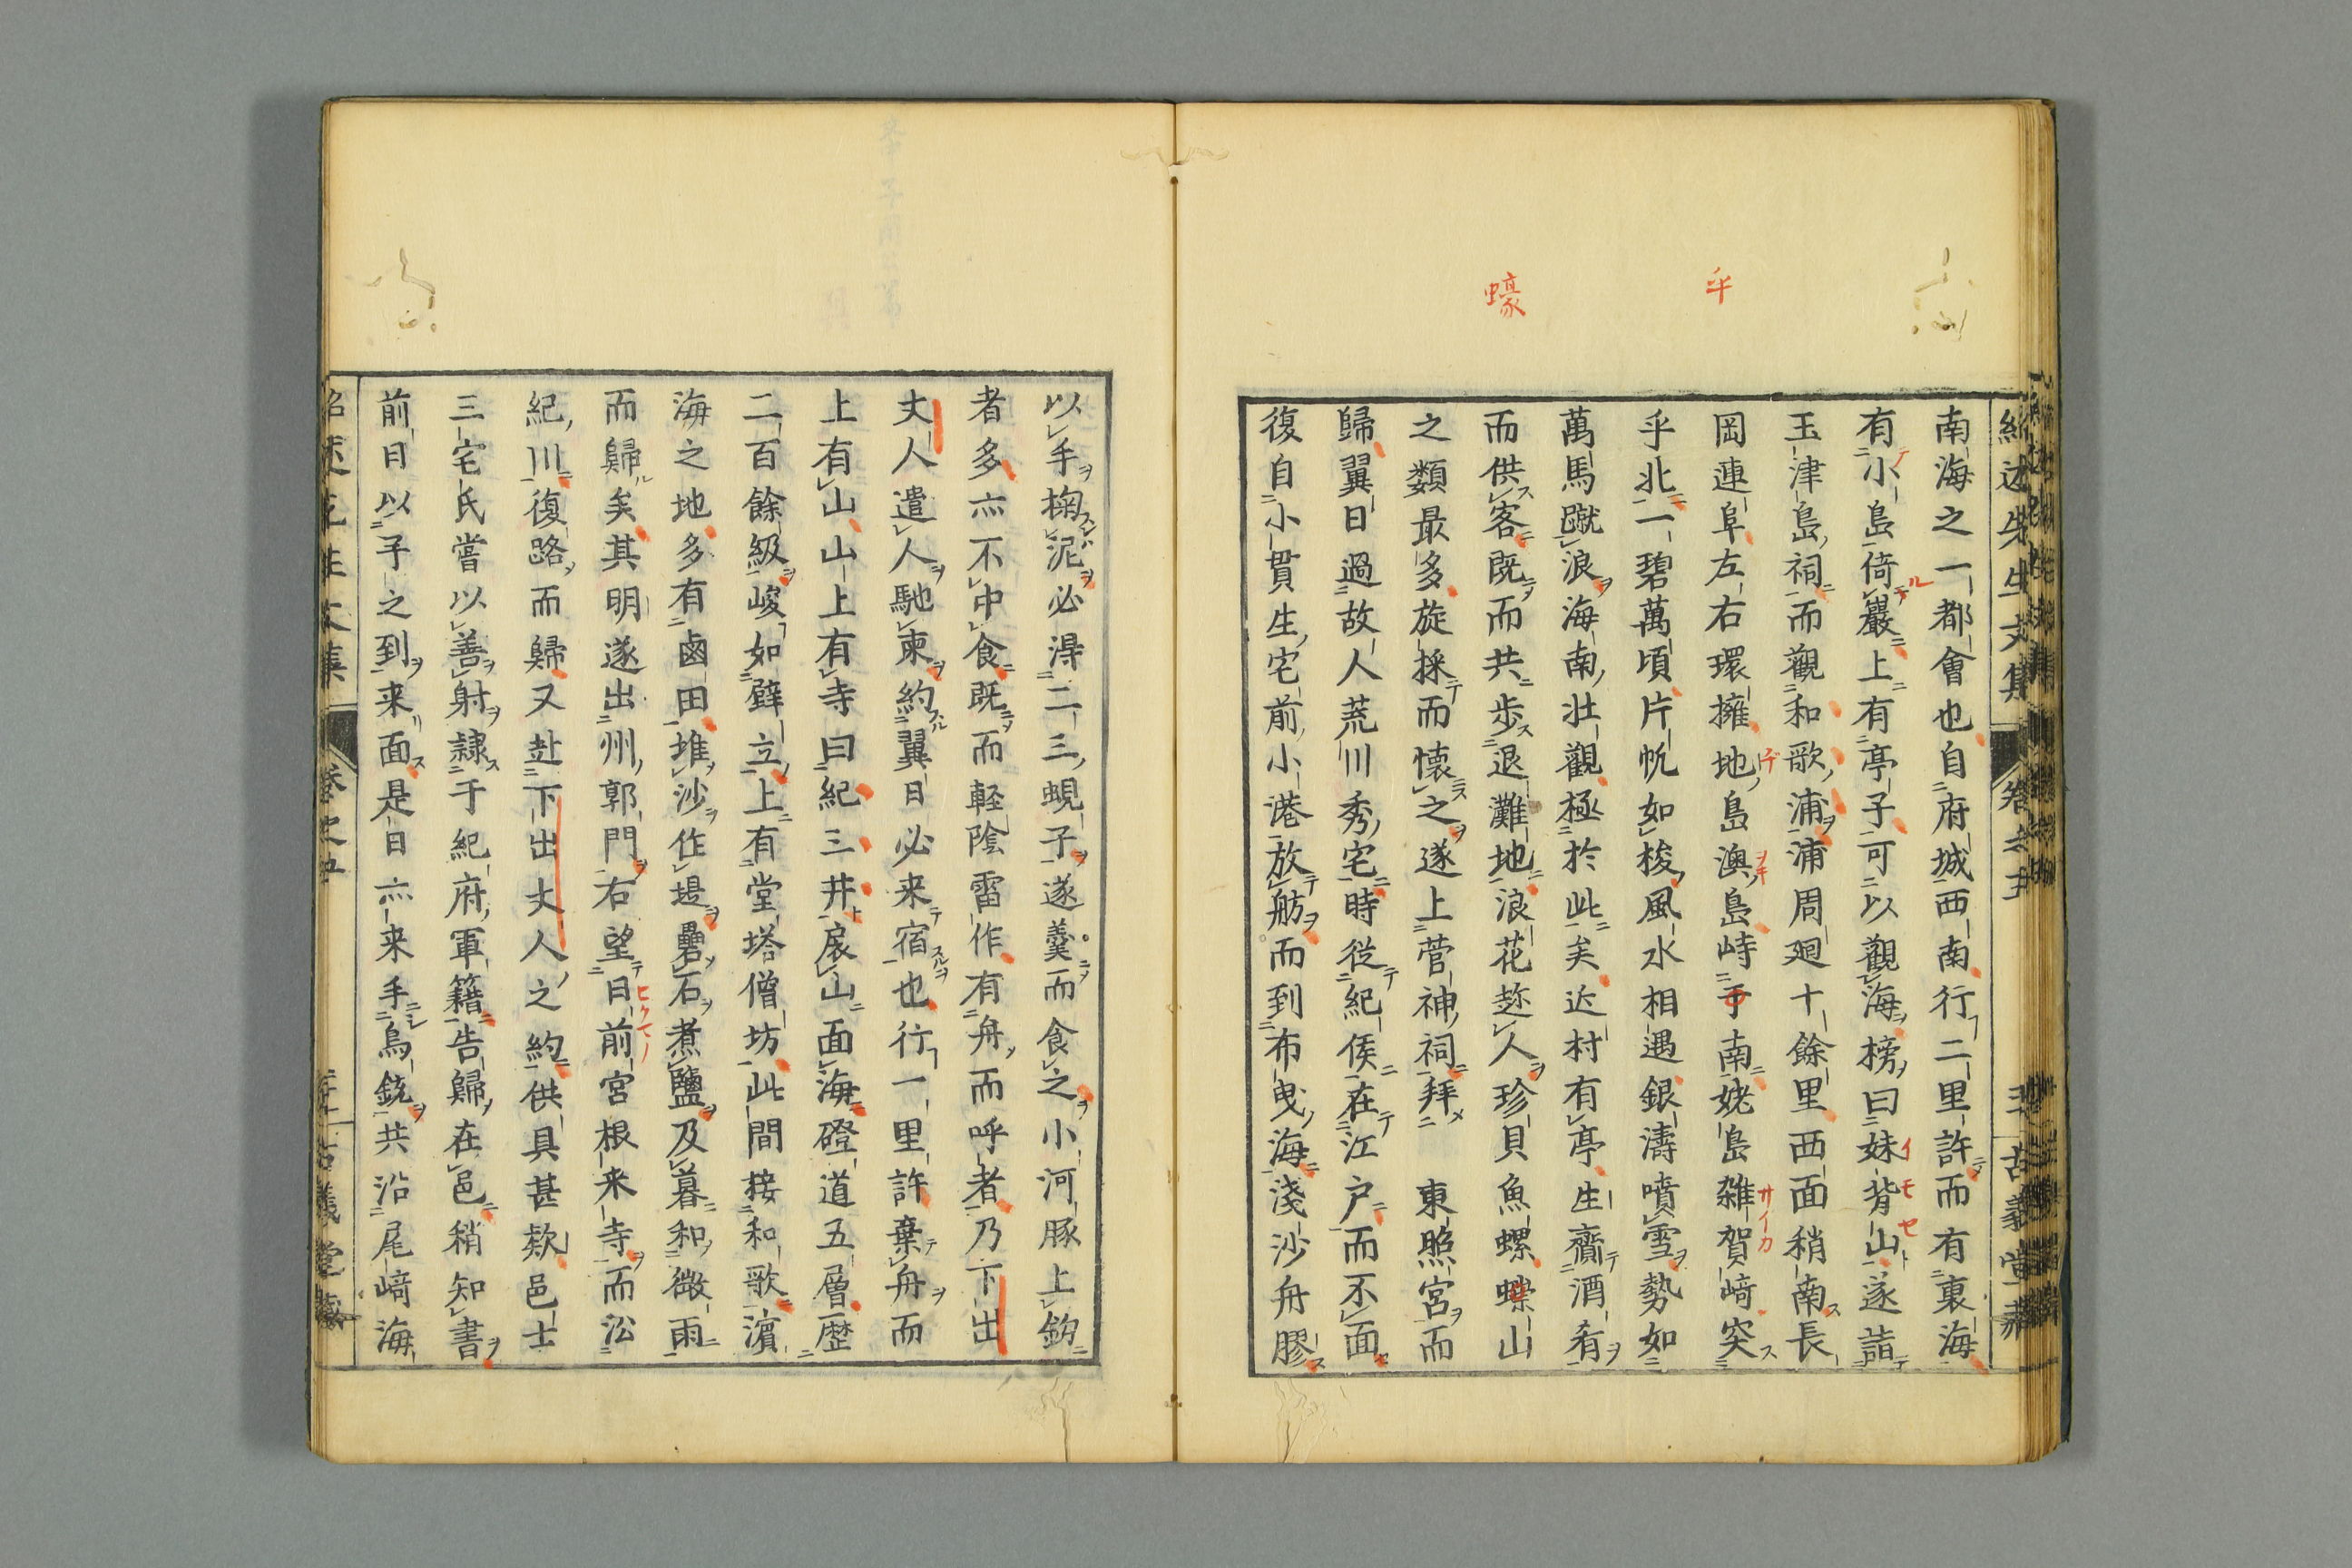 乎
蠔
南海之一都會也自府城西南行二里許而有裏海
有小島倚巖上有亭子可以觀海榜曰妹背山遂詣
玉津島祠而觀和歌浦浦周廻十餘里西面稍南長
岡連阜左右環擁地島澳島峙于南姥島雑賀﨑突
乎北一碧萬頃片帆如梭風水相遇銀濤噴雪勢如
萬馬蹴浪海南壮觀極於此矣近村有亭生齎酒肴
而供客既而共步退灘地浪花趂人珍貝魚螺蠑山
之類最多旋採而懐之遂上菅神祠拜 東照宮而
歸翼日過故人荒川秀宅時從紀侯在江户而不面
復自小貫生宅前小港放舫而到布曳海淺沙舟膠
以手掬泥必淂二三蜆子遂羹而食之小河豚上鈎
者多亦不中食既而軽陰雷作有舟而呼者乃下出
丈人遣人馳柬約翼日必来宿也行一里許棄舟而
上有山山上有寺曰紀三井扆山面海磴道五層歴
二百餘級峻如壁立上有堂塔僧坊此間接和歌濵
海之地多有鹵田堆沙作堤罍石煮鹽及暮和微雨
而歸矣其明遂出州郭門右望日前宮根来寺而㳂
紀川復路而歸又赴下出丈人之約供具甚欵邑士
三宅氏嘗以善射隷于紀府軍籍告歸在邑稍知書
前日以予之到来面是日亦来手鳥銃共沿尾﨑海